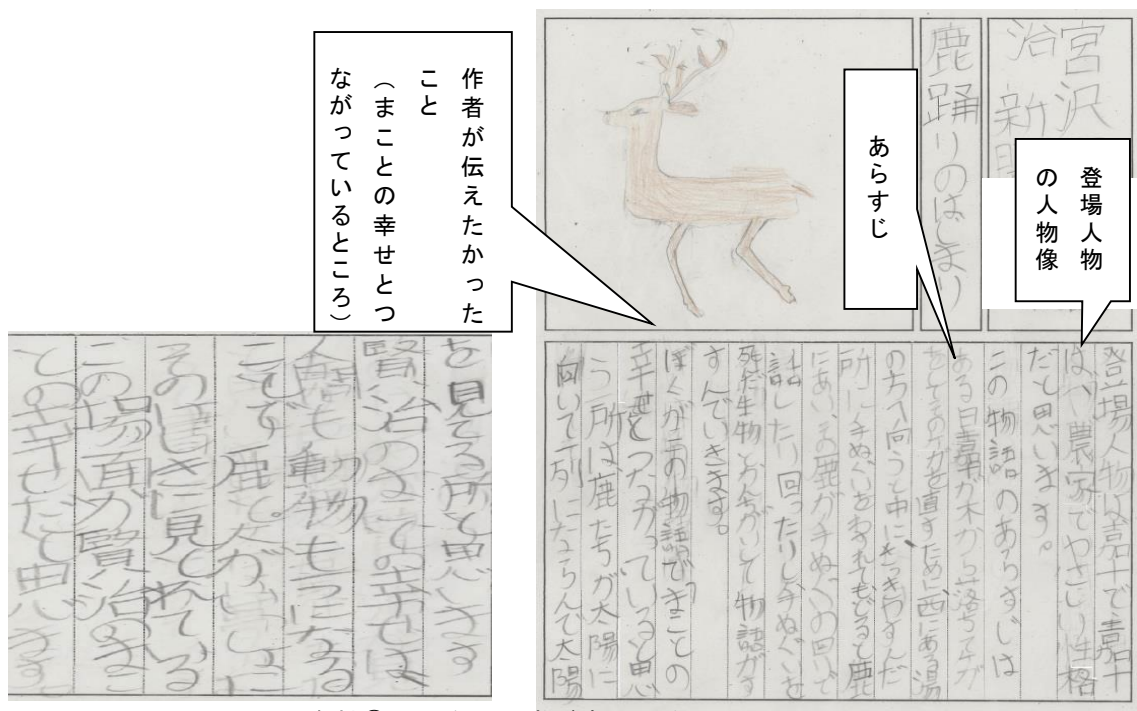 宮沢
治 新
鹿踊りのはじまり
登場人物
の人物像
あらすじ
作者が伝えたかった
こと
（まことの幸せとつ
ながっているところ）
登場人物は嘉十で嘉十
は、農家でやさしい性格
だと思います。
この物語のあらすじは
ある日嘉十が木から落ち
そのを直すために西にある湯
の方へ向って中に
所に手ぬぐいをわすれてもどると鹿
にあい、その鹿が手ぬぐいの回りで
話したり回ったりし手ぬぐいを
死だ生物とかんがいして物語がす
すんでいきる。
ぼくがこの物語で「まことの
幸せとつながっていると思
う所は鹿たちが太陽に
向いて一列にならんで太陽
を見てる所と思います
賢治のまことの幸せは
人間も動物も一つになる
ことで鹿と人が
そのけしきに見とれている
この場面が賢治のまこ
との幸せだと思います